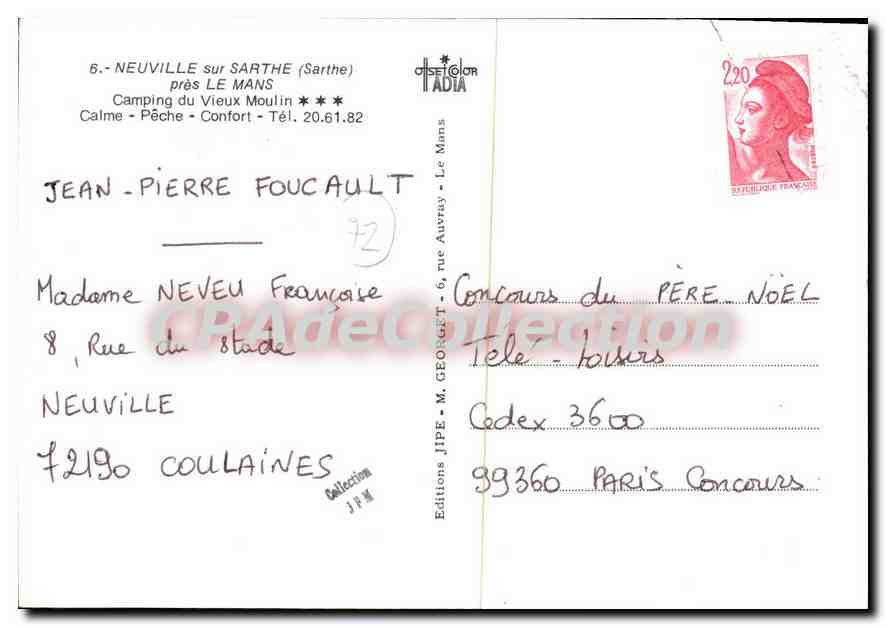 6.- NEUVILLE sur SARTHE (Sarthe)
près LE MANS
Camping du Vieux Moulin ★★★
Calme - Pêche - Confort - Tél. 20.61.82
OFFSETCOLOR
ADIA
2,20
POSTES
REPUBLIQUE FRANÇAISE
JEAN-PIERRE FOUCAULT
72
Madame NEVEU Françoise
8, Rue du Stade
NEUVILLE
72190 COULAINES
Collection
JFM
Editions JIPE - M. GEORGET - 6, rue Auvray - Le Mans
Concours du PÈRE-NOËL
Télé-Loisirs
Cedex 3600
99360 PARIS Concours
CPAdeCollection